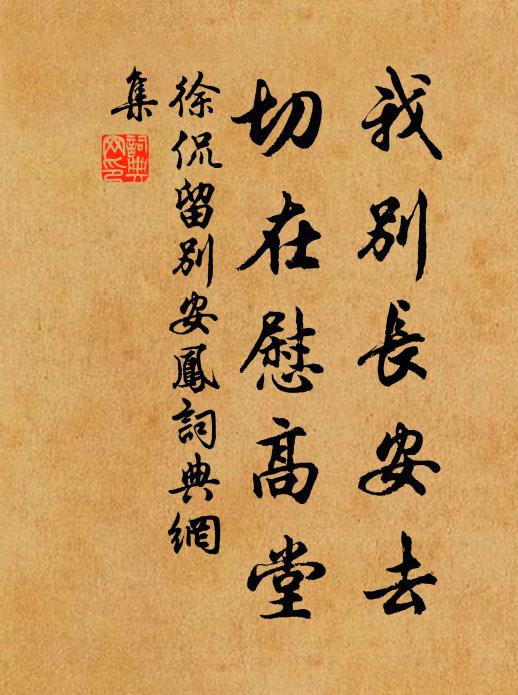 我別長安去
切在慰高堂
徐侃留別安鳳詞典網
集
詞典网印